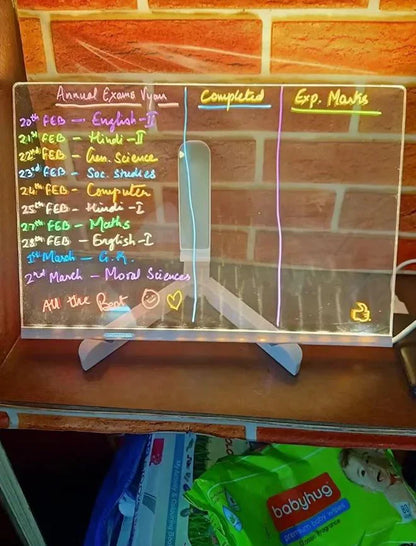 Annual Exams Vyom Completed Exp. Marks
20th FEB — English-II
21st FEB — Hindi-II
22nd FEB — Gen. Science
23rd FEB — Soc. studies
24th FEB — Computer
25th FEB — Hindi-I
27th FEB — Maths
28th FEB — English-I
1st March — G.K.
2nd March — Moral Sciences
All the Best
babyhug
premium baby wipes